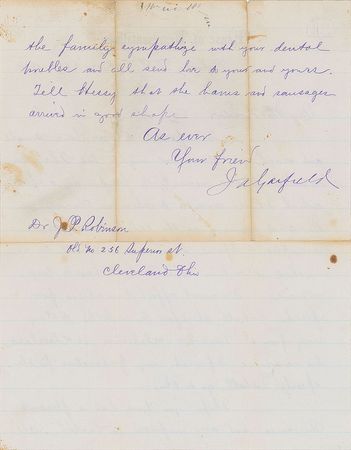 the family sympathize with your dental
troubles and all send love to your and yours.
Tell Hessy that the hams and sausages
arrived in good shape
As ever
Your friend
J A Garfield
Dr J. P. Robinson
Old No 256 Superior st.
Cleveland Ohio